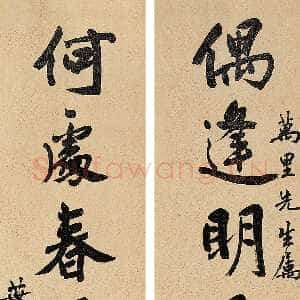 萬里先生屬
偶逢明
何處春
葉